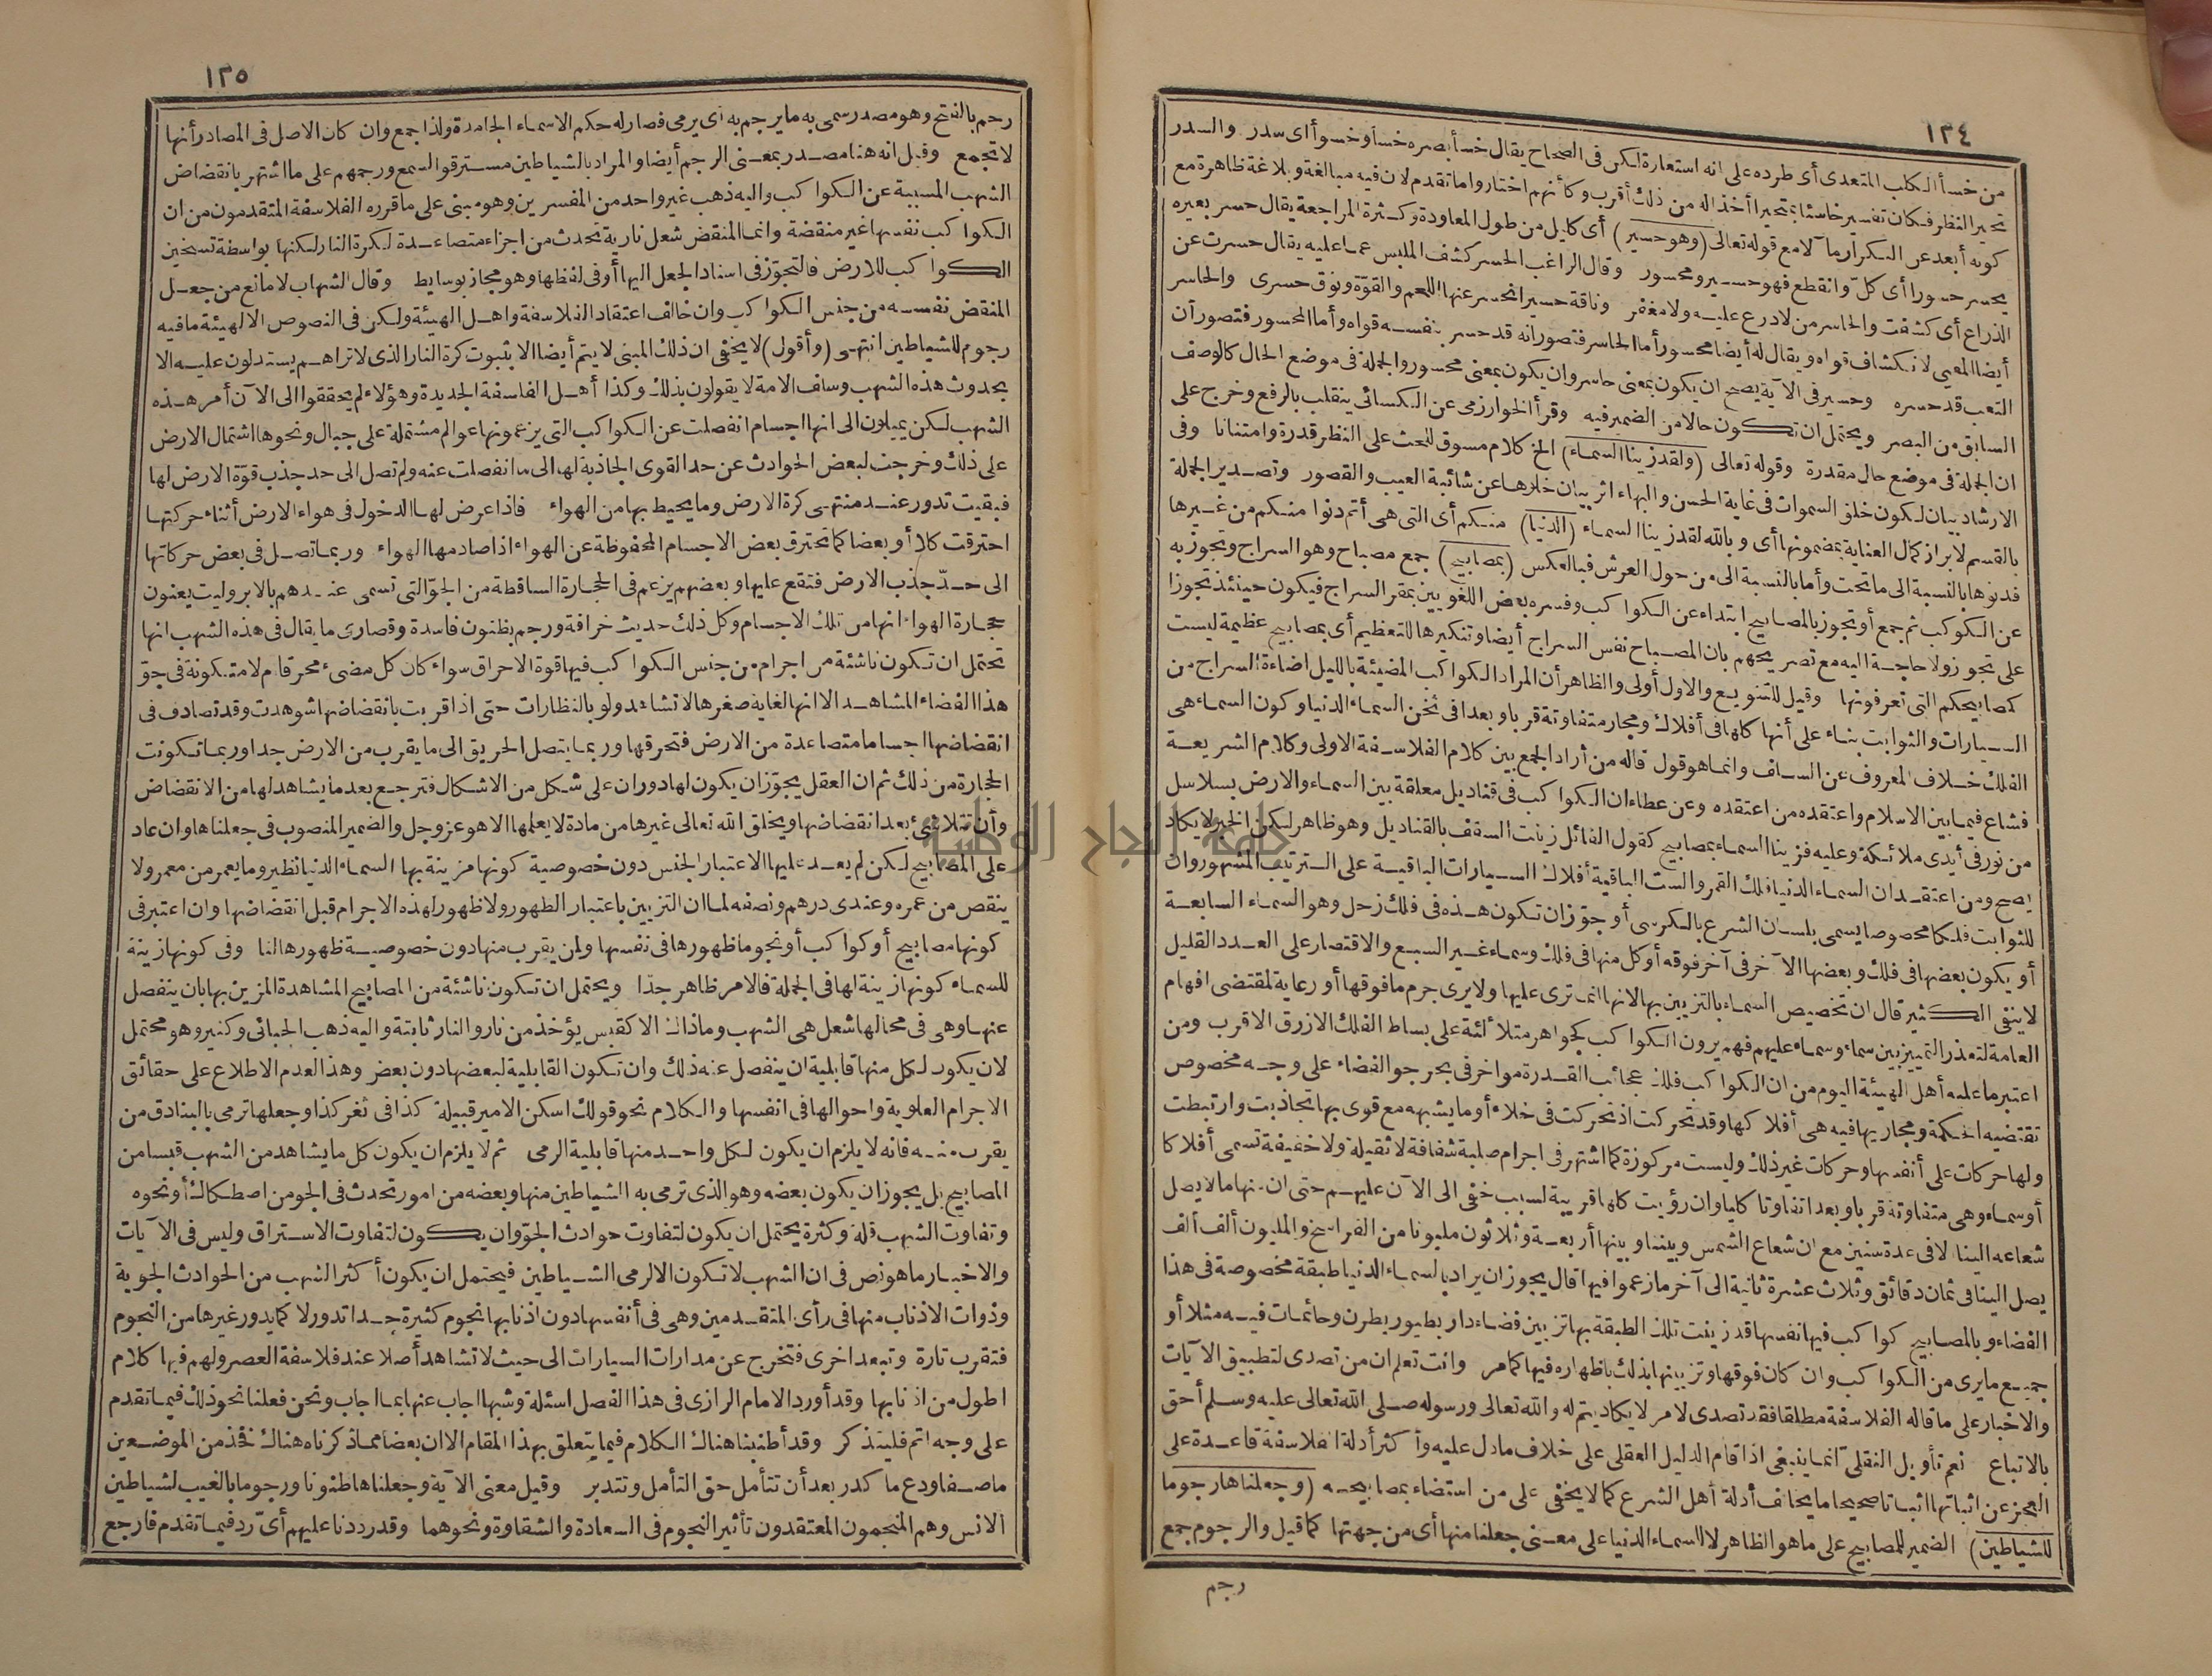 ١٣٤
من خسأ الكلب المتعدى أى طرده على انه استعارة لكن فى الصحاح يقال خسأ بصره خسأ وخسوأ اى سدر والسدر
تحير النظر فكان تفسير خاسئا بمتحيرا أخذا له من ذلك أقرب وكأنهم اختاروا ما تقدم لان فيه مبالغة وبلاغة ظاهرة مع
كونه أبعد عن التكرار ما آلا مع قوله تعالى (وهو حسير) أى كليل من طول المعاودة وكثرة المراجعة يقال حسر بعيره
يحسر حسورا أى كلّ وانقطع فهو حسير ومحسور وقال الراغب الحسر كشف الملبس عما عليه يقال حسرت عن
الذراع أى كشفت والحاسر من لا درع عليه ولا مغفر وناقة حسير انحسر عنها اللحم والقوّة ونوق حسرى والحاسر
أيضا المعيى لانكشاف قواه ويقال له أيضا محسور أما الحاسر فتصور انه قد حسر بنفسه قواه وأما المحسور فتصور أن
التعب قد حسره وحسير فى الآية يصح ان يكون بمعنى حاسر وان يكون بمعنى محسور والجملة فى موضع الحال كالوصف
السابق من البصر ويحتمل ان تكون حالا من الضمير فيه وقرأ الخوارزمى عن الكسائى ينقلب بالرفع وخرج على
ان الجملة فى موضع حال مقدرة وقوله تعالى (ولقد زينا السماء) الخ كلام مسوق للحث على النظر قدرة وامتنانا وفى
الارشاد بيان لكون خلق السموات فى غاية الحسن والبهاء اثر بيان خلوها عن شائبة العيب والقصور وتصدير الجملة
بالقسم لابراز كمال العناية بمضمونها أى وبالله لقد زينا السماء (الدنيا) منكم أى التى هى أتم دنوا منكم من غيرها
فدنوها بالنسبة الى ما تحت وأما بالنسبة الى من حول العرش فبالعكس (بمصابيح) جمع مصباح وهو السراج وتجوز به
عن الكوكب ثم جمع أو تجوز بالمصابيح ابتداء عن الكواكب وفسره بعض اللغويين بمقر السراج فيكون حينئذ تجوزا
على تجوز ولا حاجة اليه مع تصريحهم بان المصباح نفس السراج أيضا وتنكيرها للتعظيم أى بمصابيح عظيمة ليست
كمصابيحكم التى تعرفونها وقيل للتنويع والاول أولى والظاهر أن المراد الكواكب المضيئة بالليل اضاءة السراج من
السيارات والثوابت بناء على أنها كلها فى أفلاك ومجار متفاوتة قربا وبعدا فى ثخن السماء الدنيا وكون السماء هى
الفلك خلاف المعروف عن السلف وانما هو قول قاله من أراد الجمع بين كلام الفلاسفة الاولى وكلام الشريعة
فشاع فيما بين الاسلام واعتقده من اعتقده وعن عطاء ان الكواكب فى قناديل معلقة بين السماء والارض بسلاسل
من نور فى أيدى ملائكة وعليه فزينا السماء بمصابيح كقول القائل زينت السقف بالقناديل وهو ظاهر لكن الخبر لا يكاد
يصح ومن اعتقد ان السماء الدنيا فلك القمر والست الباقية أفلاك السيارات الباقية على الترتيب المشهور وان
للثوابت فلكا مخصوصا يسمى بلسان الشرع بالكرسى أو جوّز ان تكون هذه فى فلك زحل وهو السماء السابعة
أو يكون بعضها فى فلك وبعضها الآخر فى آخر فوقه أو كل منها فى فلك وسماء غير السبع والاقتصار على العدد القليل
لا ينفى الكثير قال ان تخصيص السماء بالتزيين بها لانها انما ترى عليها ولا يرى جرم ما فوقها أو رعاية لمقتضى افهام
العامة لتعذر التمييز بين سماء وسماء عليهم فهم يرون الكواكب كجواهر متلألئة على بساط الفلك الازرق الاقرب ومن
اعتبر ما عليه أهل الهيئة اليوم من ان الكواكب فلك عجائب القدرة مواخر فى بحر جو الفضاء على وجه مخصوص
تقتضيه الحكمة ومجاريها فيه هى أفلاكها وقد تحركت اذ تحركت فى خلاء أو ما يشبهه مع قوى بها تجاذبت وارتبطت
ولها حركات على أنفسها وحركات غير ذلك وليست مركوزة كما اشتهر فى اجرام صلبة شفافة لا ثقيلة ولا خفيفة تسمى أفلاكا
أو سماء وهى متفاوتة قربا وبعدا تفاوتا كليا وان رؤيت كلها قريبة لسبب خفى الى الآن عليهم حتى ان منها ما لا يصل
شعاعه الينا الا فى عدة سنين مع ان شعاع الشمس وبيننا وبينها أربعة وثلاثون مليونا من الفراسخ والمليون ألف ألف
يصل الينا فى ثمان دقائق وثلاث عشرة ثانية الى آخر ما زعموا فيها قال يجوز ان يراد بالسماء الدنيا طبقة مخصوصة فى هذا
الفضاء وبالمصابيح كواكب فيها نفسها قد زينت تلك الطبقة بها تزيين فضاء دار بطيور يطرن وحائمات فيه مثلا أو
جميع ما يرى من الكواكب وان كان فوقها وتزيينها بذلك باظهاره فيها كما مر وانت تعلم ان من تصدى لتطبيق الآيات
والاخبار على ما قاله الفلاسفة مطلقا فقد تصدى لامر لا يكاد يتم له والله تعالى ورسوله صلى الله تعالى عليه وسلم أحق
بالاتباع نعم تأويل النقلى انما ينبغى اذا قام الدليل العقلى على خلاف ما دل عليه وأكثر أدلة الفلاسفة قاعدة على
العجز عن اثباتها اثباتا صحيحا ما يخالف أدلة أهل الشرع كما لا يخفى على من استضاء بمصابيحه (وجعلناها رجوما
للشياطين) الضمير للمصابيح على ما هو الظاهر لا السماء الدنيا على معنى جعلنا منها أى من جهتها كما قيل والرجوم جمع
رجم
١٣٥
رجم بالفتح وهو مصدر سمى به ما يرجم به أى يرمى فصار له حكم الاسماء الجامدة ولذا جمع وان كان الاصل فى المصادر أنها
لا تجمع وقيل انه هنا مصدر بمعنى الرجم أيضا والمراد بالشياطين مسترقو السمع ورجمهم على ما اشتهر بانقضاض
الشهب المسببة عن الكواكب واليه ذهب غير واحد من المفسرين وهو مبنى على ما قرره الفلاسفة المتقدمون من ان
الكواكب نفسها غير منقضة وانما المنقض شعل نارية تحدث من اجزاء متصاعدة لكرة النار لكنها بواسطة تسخين
الكواكب للارض فالتجوّز فى اسناد الجعل اليها أو فى لفظها وهو مجاز بوسايط وقال الشهاب لا مانع من جعل
المنقض نفسه من جنس الكواكب وان خالف اعتقاد الفلاسفة واهل الهيئة ولكن فى النصوص الالهيئة ما فيه
رجوم للشياطين انتهى (وأقول) لا يخفى ان ذلك المبنى لا يتم أيضا الا بثبوت كرة النار الذى لا تراهم يستدلون عليه الا
بحدوث هذه الشهب وسلف الامة لا يقولون بذلك وكذا أهل الفلسفة الجديدة وهؤلاء لم يحققوا الى الآن أمر هذه
الشهب لكن يميلون الى انها اجسام انفصلت عن الكواكب التى يزعمونها عوالم مشتملة على جبال ونحوها اشتمال الارض
على ذلك وخرجت لبعض الحوادث عن حد القوى الجاذبة لها الى ما انفصلت عنه ولم تصل الى حد جذب قوّة الارض لها
فبقيت تدور عند منتهى كرة الارض وما يحيط بها من الهواء فاذا عرض لها الدخول فى هواء الارض أثناء حركتها
احترقت كلا أو بعضا كما تحترق بعض الاجسام المحفوظة عن الهواء اذا صادمها الهواء وربما تصل فى بعض حركاتها
الى حدّ جذب الارض فتقع عليها وبعضهم يزعم فى الحجارة الساقطة من الجوّ التى تسمى عندهم بالايروليت يعنون
حجارة الهواء انها من تلك الاجسام وكل ذلك حديث خرافة ورجم بظنون فاسدة وقصارى ما يقال فى هذه الشهب انها
تحتمل ان تكون ناشئة من اجرام من جنس الكواكب فيها قوة الاحراق سواء كان كل مضىء محرقا م لا متكونة فى جوّ
هذا الفضاء المشاهد الا انها لغاية صغرها لا تشاهد ولو بالنظارات حتى اذا قربت بانقضاضها شوهدت وقد تصادف فى
انقضاضها اجساما متصاعدة من الارض فتحرقها وربما يتصل الحريق الى ما يقرب من الارض جدا وربما تكونت
الحجارة من ذلك ثم ان العقل يجوّز ان يكون لها دوران على شكل من الاشكال فترجع بعد ما يشاهد لها من الانقضاض
وأن تتلاشى بعد انقضاضها ويخلق الله تعالى غيرها من مادة لا يعلمها الا هو عز وجل والضمير المنصوب فى جعلناها وان عاد
على المصابيح لكن لم يعد عليها الا عتبار الجنس دون خصوصية كونها مزينة بها السماء الدنيا نظير وما يعمر من معمر ولا
ينقص من عمره وعندى درهم ونصفه لما ان التزيين باعتبار الظهور ولا ظهور لهذه الاجرام قبل انقضاضها وان اعتبر فى
كونها مصابيح أو كواكب أو نجوما ظهورها فى نفسها ولمن يقرب منها دون خصوصية ظهورها لنا وفى كونها زينة
للسماء كونها زينة لها فى الجملة فالامر ظاهر جدّا ويحتمل ان تكون ناشئة من المصابيح المشاهدة المزين بها بان ينفصل
عنها وهى فى محالها شعل هى الشهب وما ذاك الا كقبس يؤخذ من نار والنار ثابتة واليه ذهب الجبائى وكثير وهو محتمل
لان يكون لكل منها قابلية ان ينفصل عنه ذلك وان تكون القابلية لبعضها دون بعض وهذا لعدم الاطلاع على حقائق
الاجرام العلوية واحوالها فى انفسها والكلام نحو قولك اسكن الامير قبيلة كذا فى ثغر كذا وجعلها ترمى بالبنادق من
يقرب منه فانه لا يلزم ان يكون لكل واحد منها قابلية الرمى ثم لا يلزم ان يكون كل ما يشاهد من الشهب قبسا من
المصابيح بل يجوز ان يكون بعضه وهو الذى ترمى به الشياطين منها وبعضه من امور تحدث فى الجو من اصطكاك أو نحوه
وتفاوت الشهب قلة وكثرة يحتمل ان يكون لتفاوت حوادث الجوّ وان يكون لتفاوت الاستراق وليس فى الآيات
والاخبار ما هو نص فى ان الشهب لا تكون الا لرمى الشياطين فيحتمل ان يكون أكثر الشهب من الحوادث الجوية
وذوات الاذناب منها فى رأى المتقدمين وهى فى أنفسها دون اذنابها نجوم كثيرة جدا تدور لا كما يدور غيرها من النجوم
فتقرب تارة وتبعد اخرى فتخرج عن مدارات السيارات الى حيث لا تشاهد أصلا عند فلاسفة العصر ولهم فيها كلام
اطول من اذنابها وقد أورد الامام الرازى فى هذا الفصل اسئلة وشبها اجاب عنها بما اجاب ونحن فعلنا نحو ذلك فيما تقدم
على وجه اتم فليتذكر وقد أطنبنا هناك الكلام فيما يتعلق بهذا المقام الا ان بعضا مما ذكرناه هناك فخذ من الموضعين
ما صفا ودع ما كدر بعد أن تتأمل حق التأمل وتتدبر وقيل معنى الآية وجعلناها ظنونا ورجوما بالغيب لشياطين
الانس وهم المنجمون المعتقدون تأثير النجوم فى السعادة والشقاوة ونحوهما وقد رددنا عليهم أىّ رد فيما تقدم فارجع
جامعة النجاح الوطنية